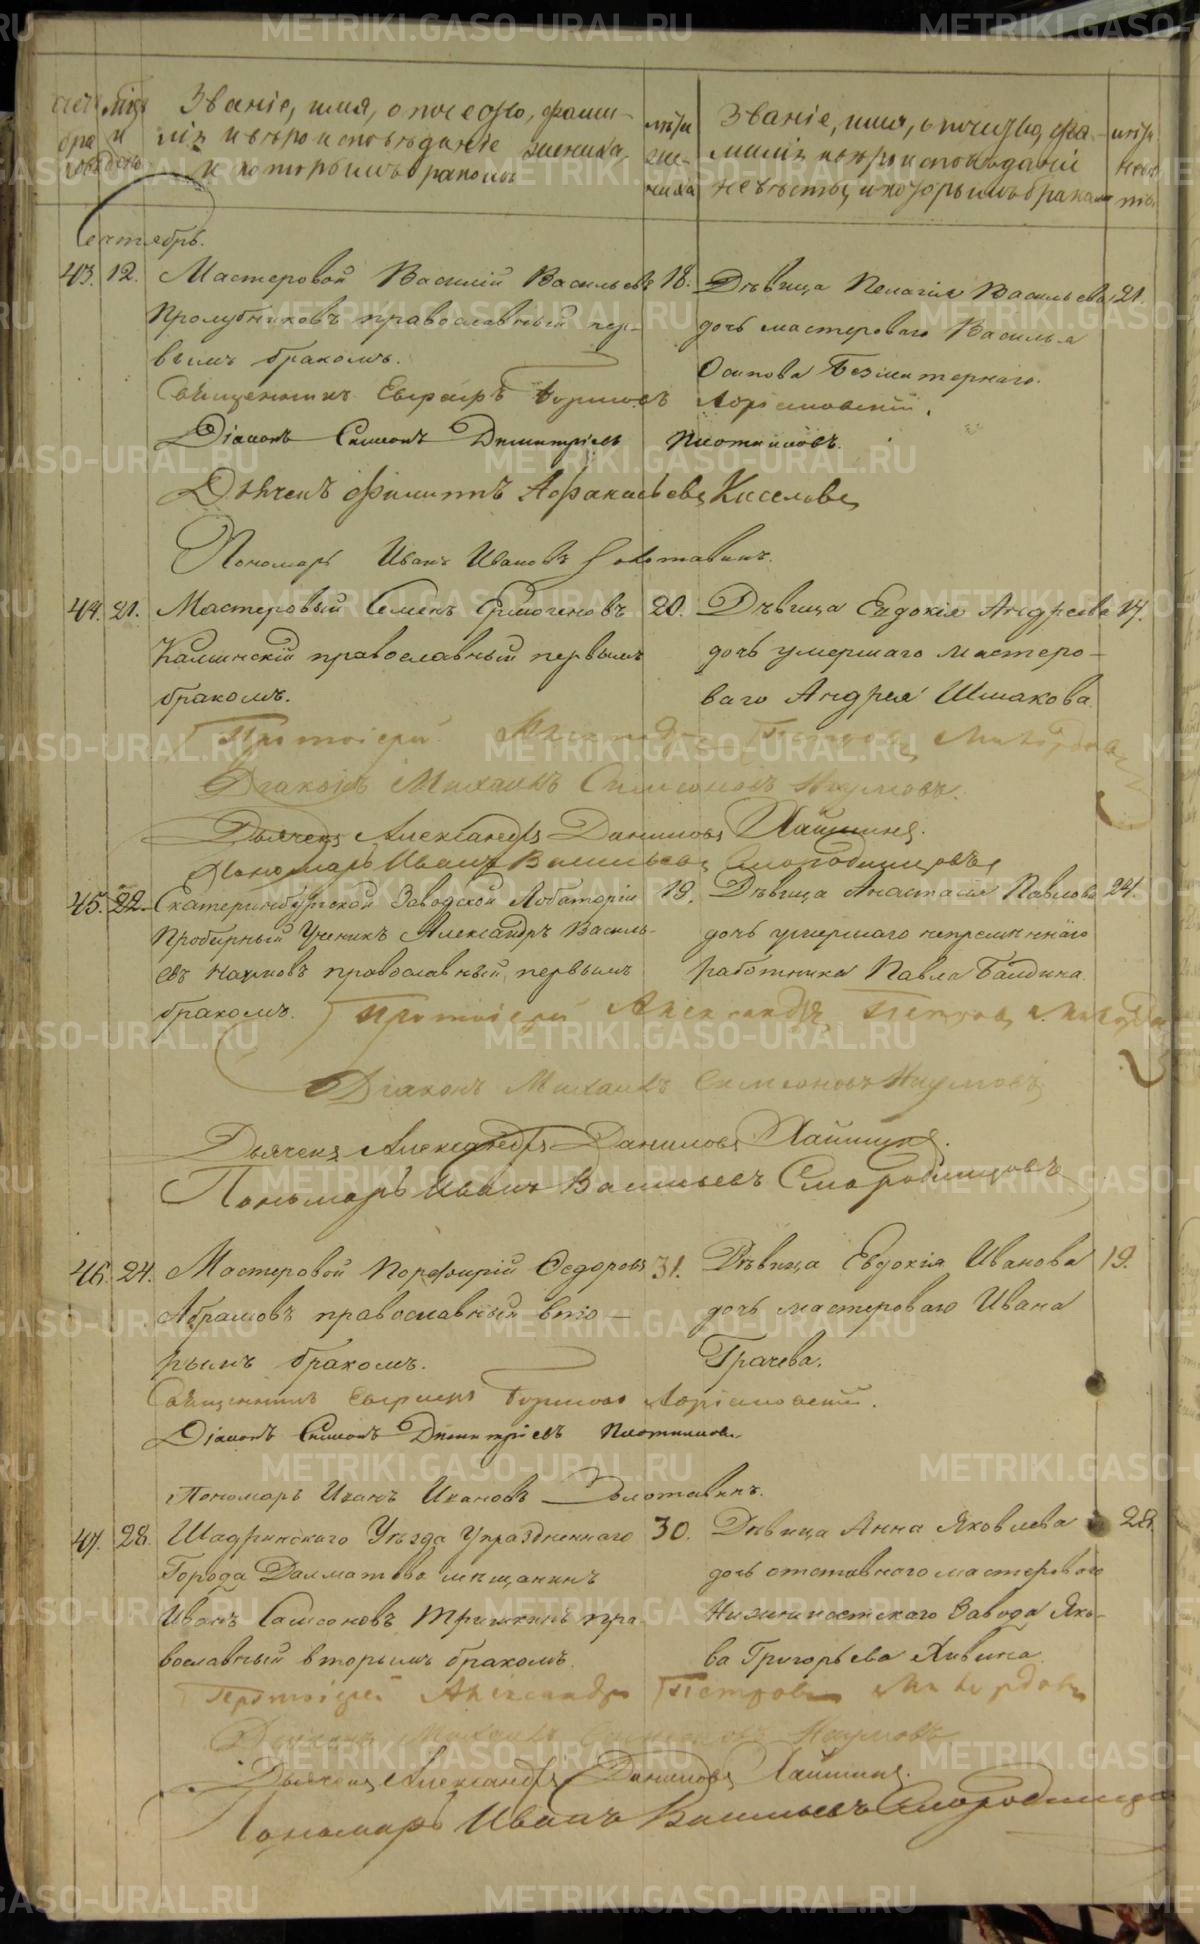 счетъ мѣся
бра и
ковъ день
Званіе, имя, отчество, фами-
лія и вѣроисповѣданіе жениха,
и которымъ бракомъ
лѣта
же-
ниха
Званіе, имя, отчество, фа-
милія и вѣроисповѣданіе
невѣсты, и которымъ бракомъ
лѣта
невѣ
сты
Сентябрь.
43. 12. Мастеровой Василій Васильевъ 18. Дѣвица Пелагія Васильева 21.
Пролубниковъ православный пер- дочь мастероваго Василья
вымъ бракомъ. Осипова Безматернаго.
Священникъ Евграфъ Борисовъ
Діаконъ Симеонъ Димитріевъ Плотниковъ.
Дьячекъ Филиппъ Афанасьевъ Киселевъ
Пономарь Иванъ Ивановъ Золотавинъ.
44. 21. Мастеровый Семенъ Ермогеновъ 20. Дѣвица Евдокія Андреева 17.
Калинскій православный первымъ дочь умершаго мастеро-
бракомъ. ваго Андрея Шмакова.
Протоіерей Александръ Петровъ
Діаконъ Михаилъ Симеоновъ Наумовъ.
Дьячекъ Александръ Даниловъ
Пономарь Иванъ Васильевъ Смородинцовъ
45. 22. Екатеринбургской Заводской Лабаторіи 19. Дѣвица Анастасія Павлова 24.
Пробирный Ученикъ Александръ Василь- дочь умершаго непремѣннаго
евъ Наумовъ православный, первымъ работника Павла Балдина.
бракомъ. Протоіерей Александръ Петровъ
Діаконъ Михаилъ Симеоновъ Наумовъ
Дьячекъ Александръ Даниловъ
Пономарь Иванъ Васильевъ Смородинцовъ
46. 24. Мастеровой Порфирій Ѳедоровъ 31. Дѣвица Евдокія Иванова 19.
Абрамовъ православный вто- дочь мастероваго Ивана
рымъ бракомъ. Грачева.
Священникъ Евграфъ Борисовъ
Діаконъ Симеонъ Димитріевъ Плотниковъ
Пономарь Иванъ Ивановъ Золотавинъ.
47. 28. Шадринскаго Уѣзда Упраздненнаго 30. Дѣвица Анна Яковлева 28.
Города Далматова мѣщанинъ дочь отставнаго мастероваго
Иванъ Самсоновъ пра- Нижнеисетскаго Завода Яко-
вославный вторымъ бракомъ. ва Григорьева
Протоіерей Александръ Петровъ
Діаконъ Михаилъ Симеоновъ Наумовъ
Дьячекъ Александръ Даниловъ
Пономарь Иванъ Васильевъ Смородинцовъ
METRIKI.GASO-URAL.RU